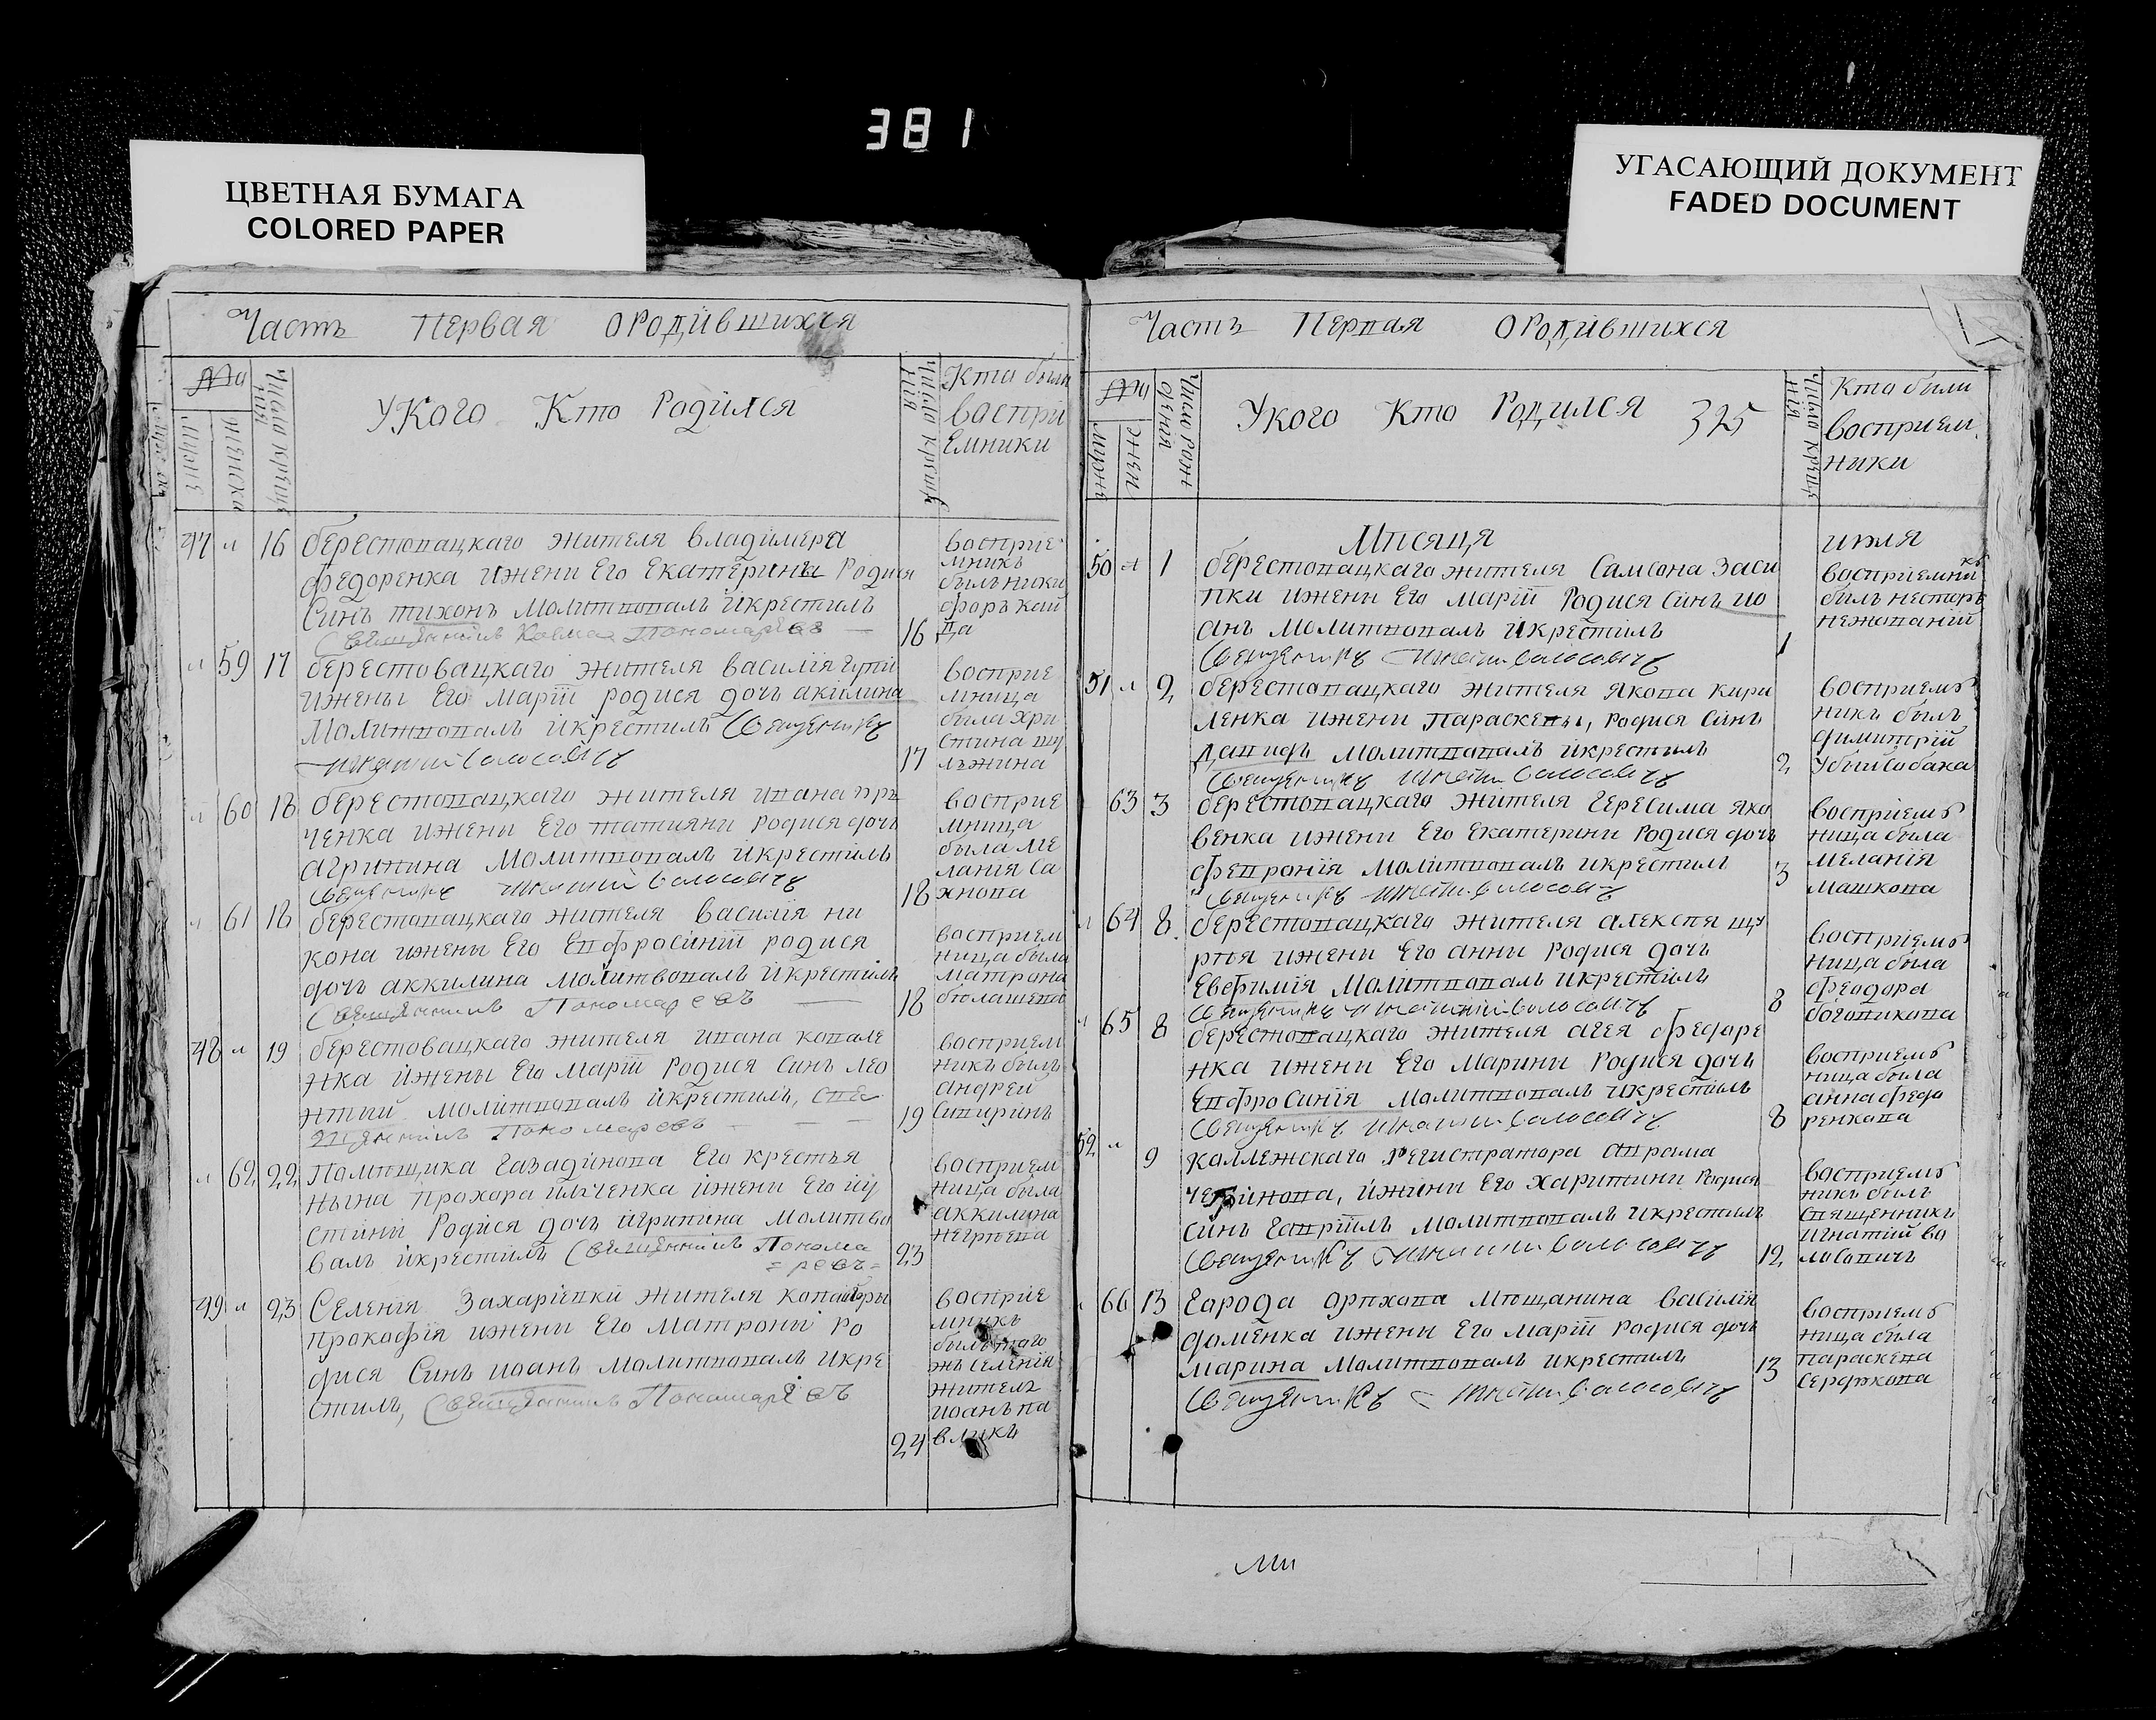 381
ЦВЕТНАЯ БУМАГА
COLORED PAPER
УГАСАЮЩИЙ ДОКУМЕНТ
FADED DOCUMENT
Часть Первая ородившихся
Укого Кто Родился
Кто были
воспри
емники
47 16 берестовацкаго жителя владимера
федоренка ижени Его Екатерины Родися
Синъ тихонъ Молитвовалъ икрестилъ
16
восприе
мникъ
былъ ники
форъ кой
да
59 17 берестовацкаго жителя василия
ижены Его мария родися дочь акилина
Молитвовалъ икрестилъ Священникъ
17
восприе
мница
была хри
стина
60 18 берестовацкаго жителя ивана
ченка ижени Его татияни родися дочь
агрипина Молитвовалъ икрестилъ
Священникъ Игнатий Волосовичъ
18
восприе
мница
была ме
лания Са
хнова
61 18 берестовацкаго жителя василия ни
кона ижены Его Евфросинии родися
дочь аккилина молитвовалъ икрестилъ
Священникъ Пономаревъ
18
восприем
ница была
матрона
48 19 берестовацкаго жителя ивана ковале
нка ижены Его Марии Родися Синъ лео
нтий молитвовалъ икрестилъ, Свя
щенникъ Пономаревъ
19
восприем
никъ былъ
андрей
62 22 Помещика Газадинова Его крестья
нына прохора илченка ижени Его иу
стини Родися дочь агрипина Молитво
валъ икрестилъ Священникъ Понома
=ревъ=
23
восприем
ница была
аккилина
49 23 Селения Захариевки жителя
прокофия ижени Его Матрони ро
дися Синъ иоанъ молитвовалъ икре
стилъ, Священникъ Пономаревъ
24
восприе
мникъ
былъ того
жъ селения
житель
иоанъ па
вликъ
Часть Первая ородившихся
Укого Кто Родился 325
Кто были
восприем
ники
Месяця июля
50 1 берестовацкаго жителя Самсона Заси
пки ижени Его Марии Родися Синъ ио
анъ Молитвовалъ икрестилъ
Священникъ Игнатий Волосовичъ
1
восприемни
къ
былъ несторъ
51 2 берестовацкаго жителя якова кири
ленка ижени параскевы, родися синъ
давидъ молитвовалъ икрестилъ
Священникъ Игнатий Волосовичъ
2
восприем
никъ былъ
димитрий
Убийсобака
63 3 берестовацкаго жителя Гересима яко
венка ижени Его Екатерини Родися дочь
феврония молитвовалъ икрестилъ
Священникъ Игнатий Волосовичъ
3
восприем
ница была
мелания
машкова
64 8 берестовацкаго жителя алексея
ижени Его анни Родися дочь
Евфимия Молитвовалъ икрестилъ
Священникъ Игнатий Волосовичъ
8
восприем
ница была
феодора
65 8 берестовацкаго жителя агея федоре
нка ижени Его Марини Родися дочь
Евфросиния молитвовалъ икрестилъ
Священникъ Игнатий Волосовичъ
8
восприем
ница была
анна федо
ренкова
52 9 коллежскаго регистратора
ижени Его харитини Родися
синъ гавриилъ молитвовалъ икрестилъ
Священникъ Игнатий Волосовичъ
12
восприем
никъ былъ
священникъ
игнатий во
лосовичъ
66 13 города орехова мещанина василия
фоменка ижени Его марии родися дочь
марина молитвовалъ икрестилъ
Священникъ Игнатий Волосовичъ
13
восприем
ница была
параскева